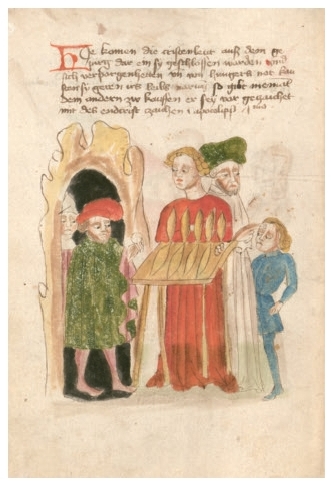 Hie komen die cristenleut auß dem ge
pürg dar ein sy geschlossen worden und
sich verporgen heten von hungers not
sten sy geren so gibt niemant
dem andern ze kauffen er sey vor gezaichet
mit des endcrist zaichen apocalipsis